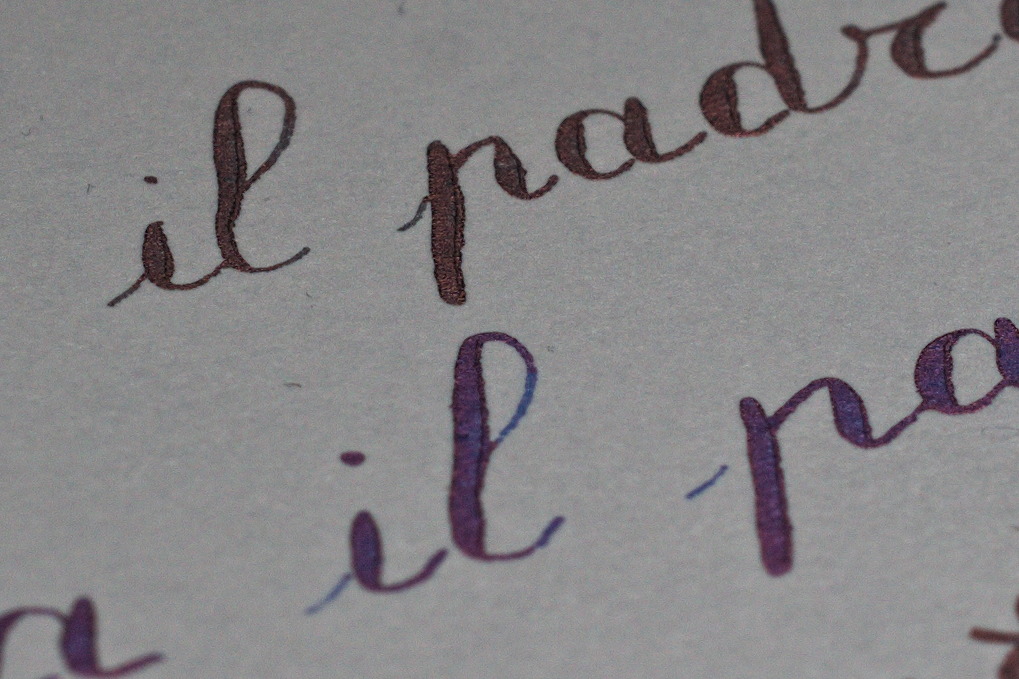 il padre
il pa
a